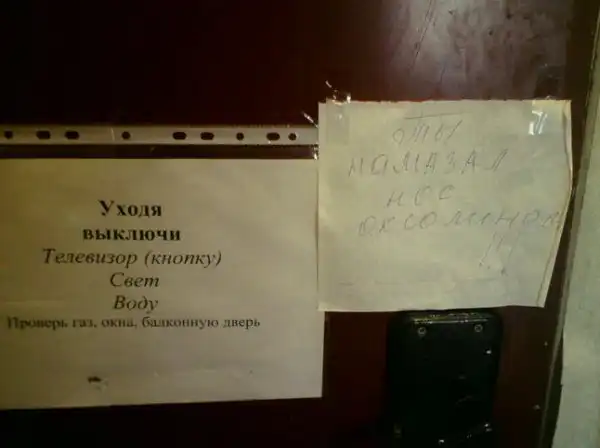 Уходя
выключи
Телевизор (кнопку)
Свет
Воду
Проверь газ, окна, балконную дверь
ТЫ
НАМАЗАЛ
НОС
ОКСОЛИНОМ
!!!